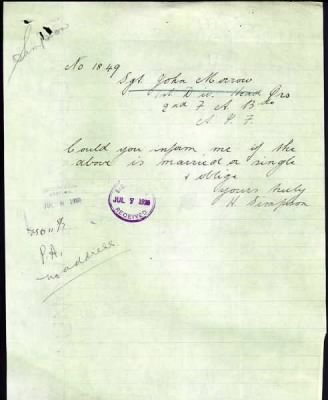 Simpson
No 1849
Sgt John Morrow
1st Div. Head Qrs
2nd F A Bde
A I F
Could you inform me if the
above is married or single
& oblige
Yours truly
H Simpson
JUL 7 1920
RECEIVED
P.A.
no address